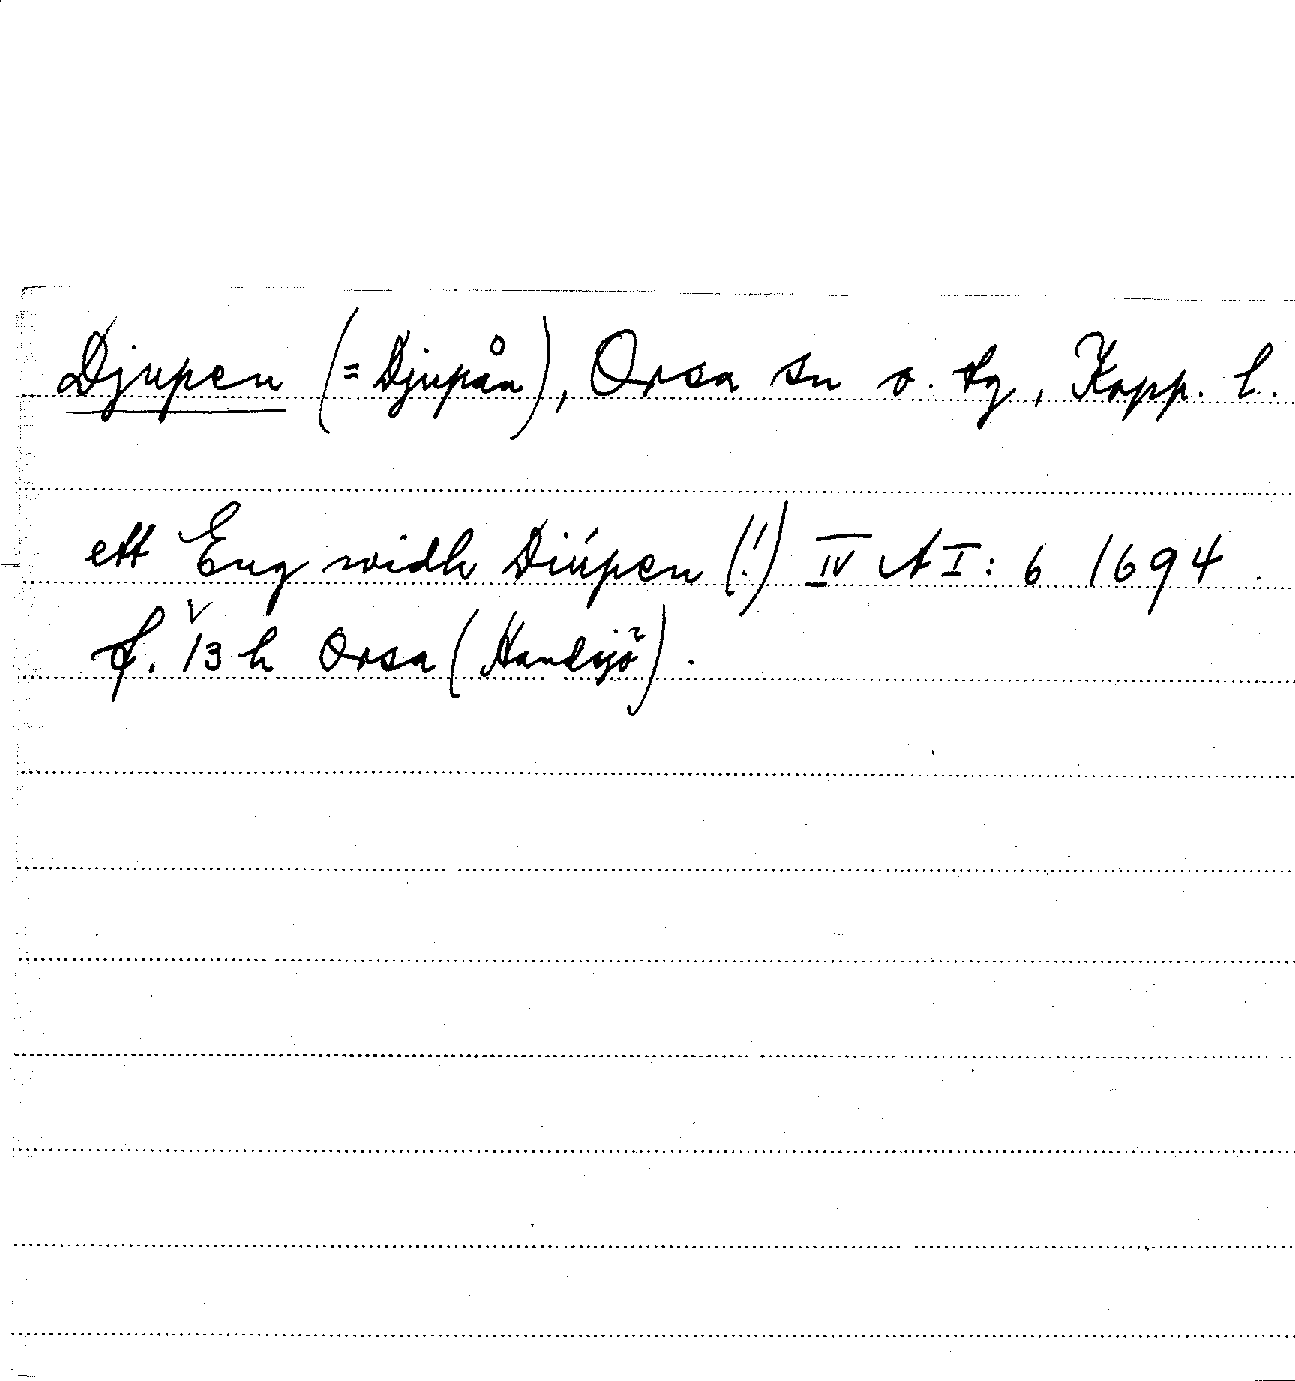 Djupen (= Djupån), Orsa sn o. tg, Kopp. l.
ett Eng widh Diúpen (!) IV A I: 6 1694
f. 13 h Orsa (Handsjö).